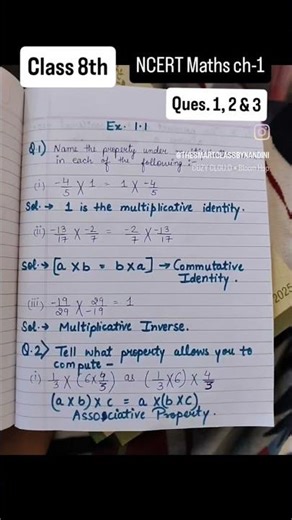 Class 8th
NCERT Maths ch-1
Ques. 1, 2 & 3
Ex. 1.1
Q.1) Name the property under
in each of the following :-
@THESMARTCLASSBYNANDINI
(i) -4/5 × 1 = 1 × -4/5
Sol → 1 is the multiplicative identity.
(ii) -13/17 × -2/7 = -2/7 × -13/17
Sol → [a × b = b × a] → Commutative
Identity.
(iii) -19/29 × 29/-19 = 1
Sol → Multiplicative Inverse.
Q.2) Tell what property allows you to
compute -
(i) 1/3 × (6 × 4/3) as (1/3 × 6) × 4/3
(a × b) × c = a × (b × c)
Associative Property.
2025